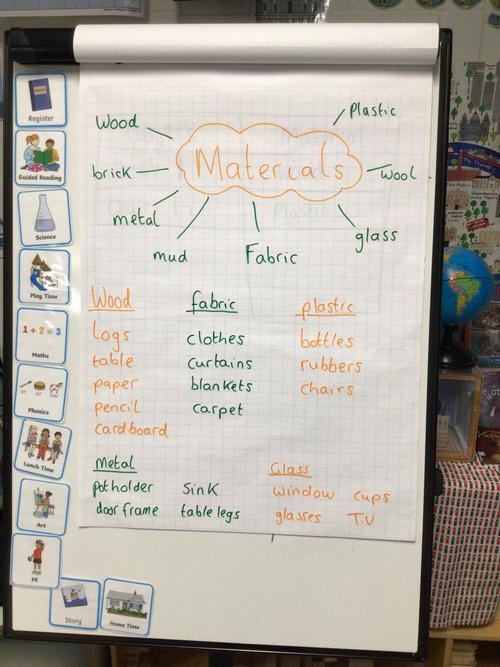 Wood
Plastic
Materials
brick
wool
metal
glass
mud
Fabric
Wood
fabric
plastic
logs
clothes
bottles
table
curtains
rubbers
paper
blankets
chairs
pencil
carpet
cardboard
Metal
Glass
potholder
sink
window
cups
door frame
table legs
glasses
T.V
Register
Guided Reading
Science
Play Time
1 + 2 = 3
Maths
Phonics
Lunch Time
Art
PE
Story
Home Time